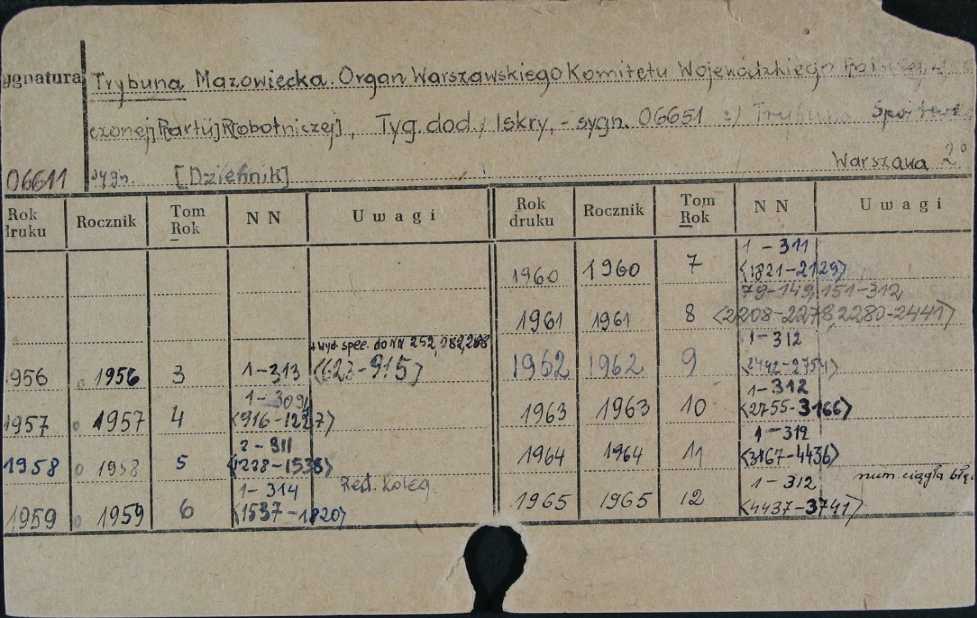 ygnatura Trybuna Mazowiecka. Organ Warszawskiego Komitetu Wojewódzkiego
czonej] P[artii] R[obotniczej], Tyg. dod., Iskry, - sygn. 06651 2) Trybuna Sportowa
Warszawa 2°
06611 sygn. [Dziennik]
Rok druku Rocznik Tom Rok NN Uwagi Rok druku Rocznik Tom Rok NN Uwagi
1960 1960 7 1-311 <1821-2129>
1961 1961 8 79-149, 151-312, <2208-2278, 2280-2441>
+ wyd. spec. do NN 252,
956 1956 3 1-313 <623-915>
1962 1962 9 1-312
1957 1957 4 <916-1227>
1963 1963 10 1-312 <2755-3166>
1958 1958 5 2-311 <1228-1538>
1964 1964 11 1-312 <3167-4436>
1959 1959 6 1-314 <1537-1820>
1965 1965 12 1-312 <4437-3741> num. ciągła